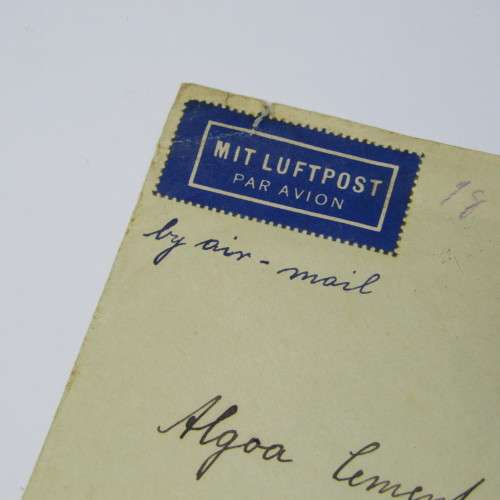 MIT LUFTPOST
PAR AVION
by air-mail
Algoa Cement